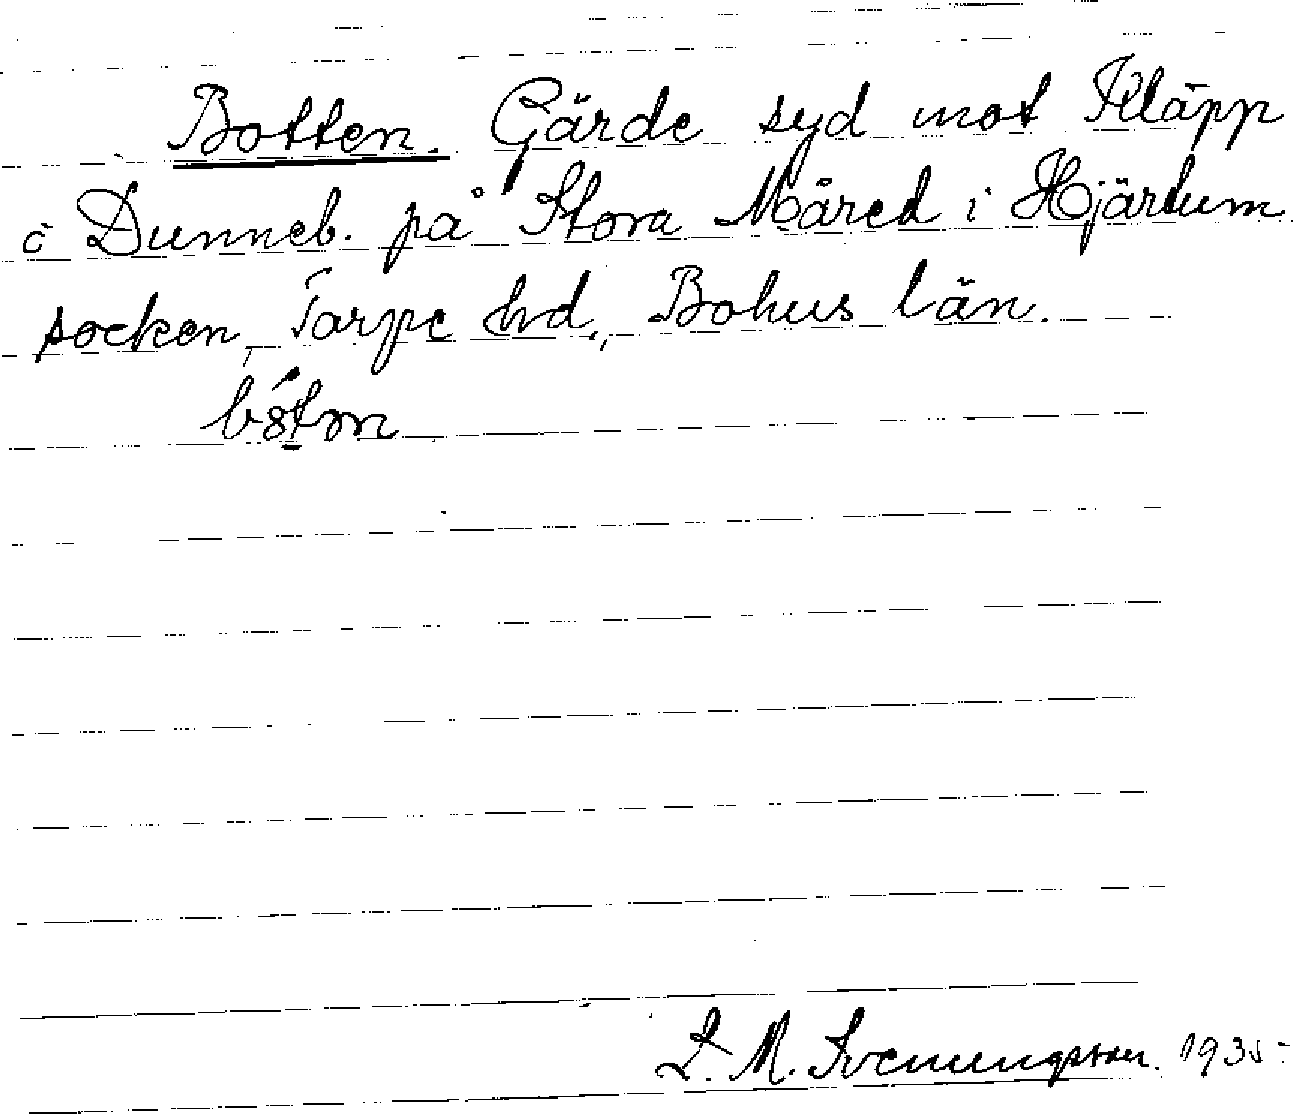 Botten. Gärde syd mot Kläpp
å Dunneb. på Stora Måred i Hjärtum
socken, Torpe hd., Bohus län.
L. M. Svenungsson. 1935